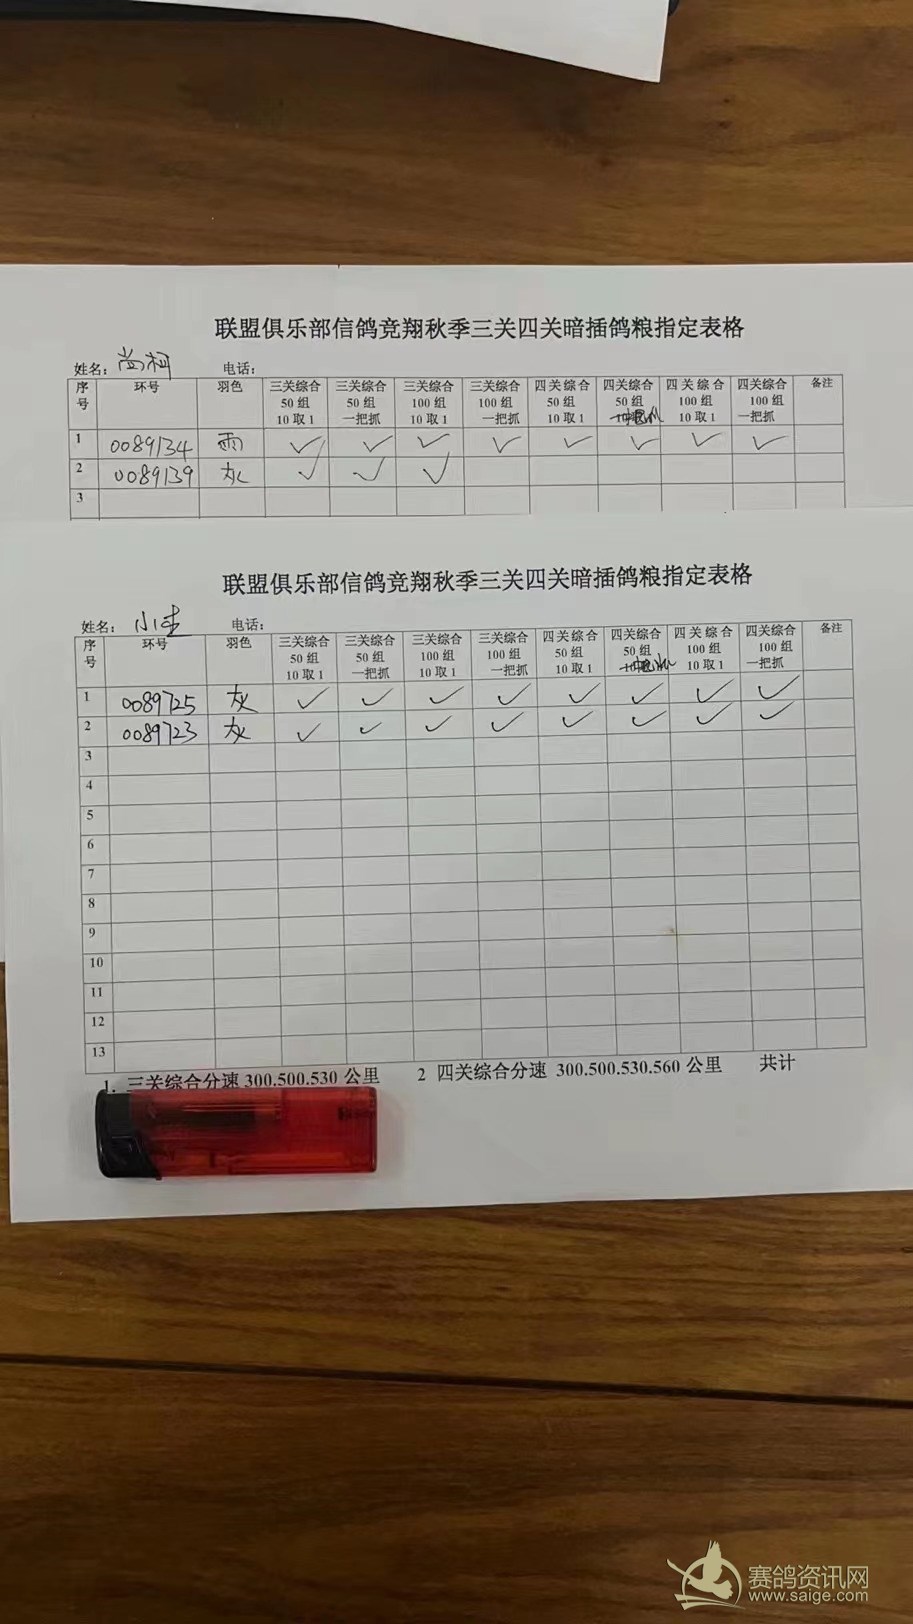 联盟俱乐部信鸽竞翔秋季三关四关暗插鸽粮指定表格
姓名：尚柯 电话：
序号 环号 羽色 三关综合50 组10 取 1 三关综合50 组一把抓 三关综合100 组10 取 1 三关综合100 组一把抓 四关综合50 组10 取 1 四关综合50 组 四关综合100 组10 取 1 四关综合100 组一把抓 备注
1 0089134 雨 ✓ ✓ ✓ ✓ ✓ ✓ ✓ ✓
2 0089139 灰 ✓ ✓ ✓
3
联盟俱乐部信鸽竞翔秋季三关四关暗插鸽粮指定表格
姓名： 电话：
序号 环号 羽色 三关综合50 组10 取 1 三关综合50 组一把抓 三关综合100 组10 取 1 三关综合100 组一把抓 四关综合50 组10 取 1 四关综合50 组 四关综合100 组10 取 1 四关综合100 组一把抓 备注
1 0089725 灰 ✓ ✓ ✓ ✓ ✓ ✓ ✓ ✓
2 0089723 灰 ✓ ✓ ✓ ✓ ✓ ✓ ✓ ✓
3
4
5
6
7
8
9
10
11
12
13
1. 三关综合分速 300.500.530 公里 2 四关综合分速 300.500.530.560 公里 共计
赛鸽资讯网
www.saige.com